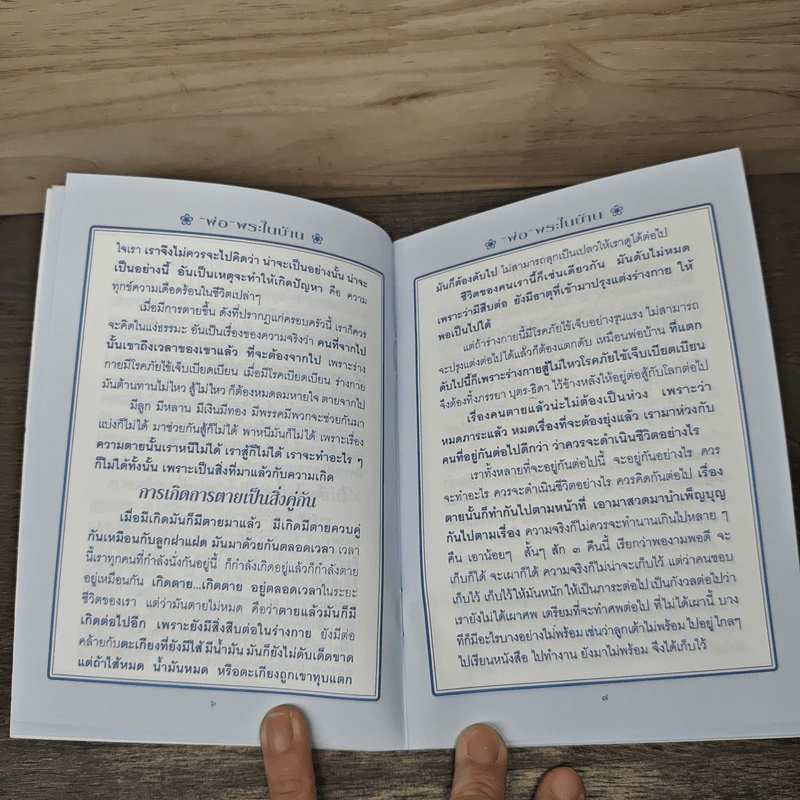 "พ่อ" พระในบ้าน
ใจเรา เราจึงไม่ควรจะไปคิดว่า น่าจะเป็นอย่างนั้น น่าจะ
เป็นอย่างนี้ อันเป็นเหตุจะทำให้เกิดปัญหา คือ ความ
ทุกข์ความเดือดร้อนในชีวิตเปล่าๆ
เมื่อมีการตายขึ้น ดังที่ปรากฏแก่ครอบครัวนี้ เราก็ควร
จะคิดในแง่ธรรมะ อันเป็นเรื่องของความจริงว่า คนที่จากไป
นั้นเขาถึงเวลาของเขาแล้ว ที่จะต้องจากไป เพราะร่าง
กายมีโรคภัยไข้เจ็บเบียดเบียน เมื่อมีโรคเบียดเบียน ร่างกาย
มันต้านทานไม่ไหว สู้ไม่ไหว ก็ต้องหมดลมหายใจ ตายจากไป
มีลูก มีหลาน มีเงินมีทอง มีพรรคมีพวกจะช่วยกันมา
แบ่งก็ไม่ได้ มาช่วยกันสู้ก็ไม่ได้ พาหนีมันก็ไม่ได้ เพราะเรื่อง
ความตายนั้นเราหนีไม่ได้ เราสู้ก็ไม่ได้ เราจะทำอะไร ๆ
ก็ไม่ได้ทั้งนั้น เพราะเป็นสิ่งที่มาแล้วกับความเกิด
การเกิดการตายเป็นสิ่งคู่กัน
เมื่อมีเกิดมันก็มีตายมาแล้ว มีเกิดมีตายควบคู่
กันเหมือนกับลูกฝาแฝด มันมาด้วยกันตลอดเวลา เวลา
นี้เราทุกคนที่กำลังนั่งกันอยู่นี้ ก็กำลังเกิดอยู่แล้วก็กำลังตาย
อยู่เหมือนกัน เกิดตาย...เกิดตาย อยู่ตลอดเวลาในระยะ
ชีวิตของเรา แต่ว่ามันตายไม่หมด คือว่าตายแล้วมันก็มี
เกิดต่อไปอีก เพราะยังมีสิ่งสืบต่อในร่างกาย ยังมีต่อ
คล้ายกับตะเกียงที่ยังมีไส้ มีน้ำมัน มันก็ยังไม่ดับเด็ดขาด
แต่ถ้าไส้หมด น้ำมันหมด หรือตะเกียงถูกเขาทุบแตก
๖
"พ่อ" พระในบ้าน
มันก็ต้องดับไป ไม่สามารถลุกเป็นเปลวให้เราดูได้ต่อไป
ชีวิตของคนเรานี้ก็เช่นเดียวกัน มันดับไม่หมด
เพราะว่ามีสืบต่อ ยังมีธาตุที่เข้ามาปรุงแต่งร่างกาย ให้
พอเป็นไปได้
แต่ถ้าร่างกายนี้มีโรคภัยไข้เจ็บอย่างรุนแรง ไม่สามารถ
จะปรุงแต่งต่อไปได้แล้วก็ต้องแตกดับ เหมือนพ่อบ้าน ที่แตก
ดับไปนี้ก็เพราะร่างกายสู้ไม่ไหวโรคภัยไข้เจ็บเบียดเบียน
จึงต้องทิ้งภรรยา บุตร-ธิดา ไว้ข้างหลังให้อยู่ต่อสู้กับโลกต่อไป
เรื่องคนตายแล้วน่ะไม่ต้องเป็นห่วง เพราะว่า
หมดภาระแล้ว หมดเรื่องที่จะต้องยุ่งแล้ว เรามาห่วงกับ
คนที่อยู่กันต่อไปดีกว่า ว่าควรจะดำเนินชีวิตอย่างไร
เราทั้งหลายที่จะอยู่กันต่อไปนี้ จะอยู่กันอย่างไร ควร
จะทำอะไร ควรจะดำเนินชีวิตอย่างไร ควรคิดกันต่อไป เรื่อง
ตายนั้นก็ทำกันไปตามหน้าที่ เอามาสวดมาบำเพ็ญบุญ
กันไปตามเรื่อง ความจริงก็ไม่ควรจะทำนานเกินไปหลาย ๆ
คืน เอาน้อยๆ สั้นๆ สัก ๓ คืนนี้ เรียกว่าพองามพอดี จะ
เก็บก็ได้ จะเผาก็ได้ ความจริงก็ไม่น่าจะเก็บไว้ แต่ว่าคนชอบ
เก็บไว้ เก็บไว้ให้มันหนัก ให้เป็นภาระต่อไป เป็นกังวลต่อไปว่า
เรายังไม่ได้เผาศพ เตรียมที่จะทำศพต่อไป ที่ไม่ได้เผานี้ บาง
ทีก็มีอะไรบางอย่างไม่พร้อม เช่นว่าลูกเต้าไม่พร้อม ไปอยู่ ไกลๆ
ไปเรียนหนังสือ ไปทำงาน ยังมาไม่พร้อม จึงได้เก็บไว้
๗